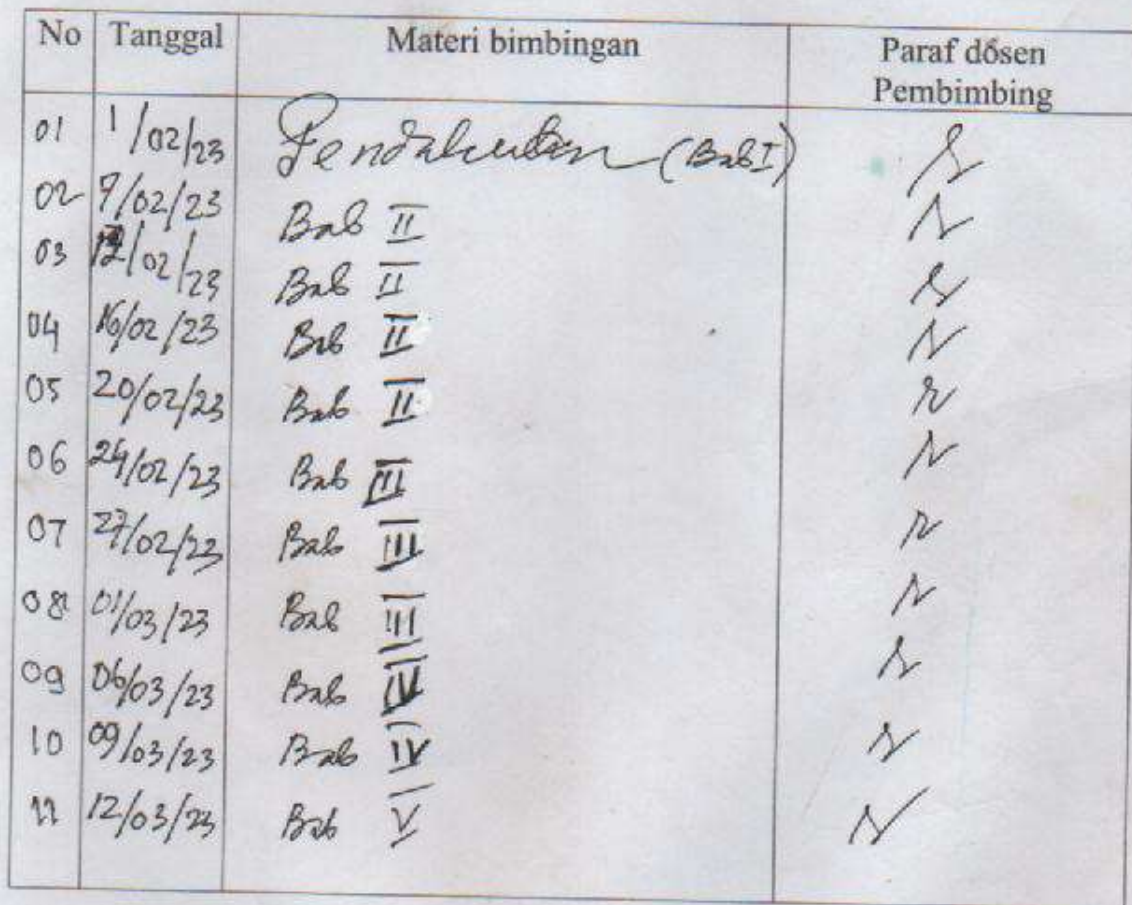 No Tanggal Materi bimbingan Paraf dosen
Pembimbing
01 1/02/23 Pendahuluan (Bab I)
02 7/02/23 Bab II
03 /02/23 Bab II
04 16/02/23 Bab II
05 20/02/23 Bab II
06 24/02/23 Bab III
07 27/02/23 Bab III
08 01/03/23 Bab III
09 06/03/23 Bab IV
10 09/03/23 Bab IV
11 12/03/23 Bab V